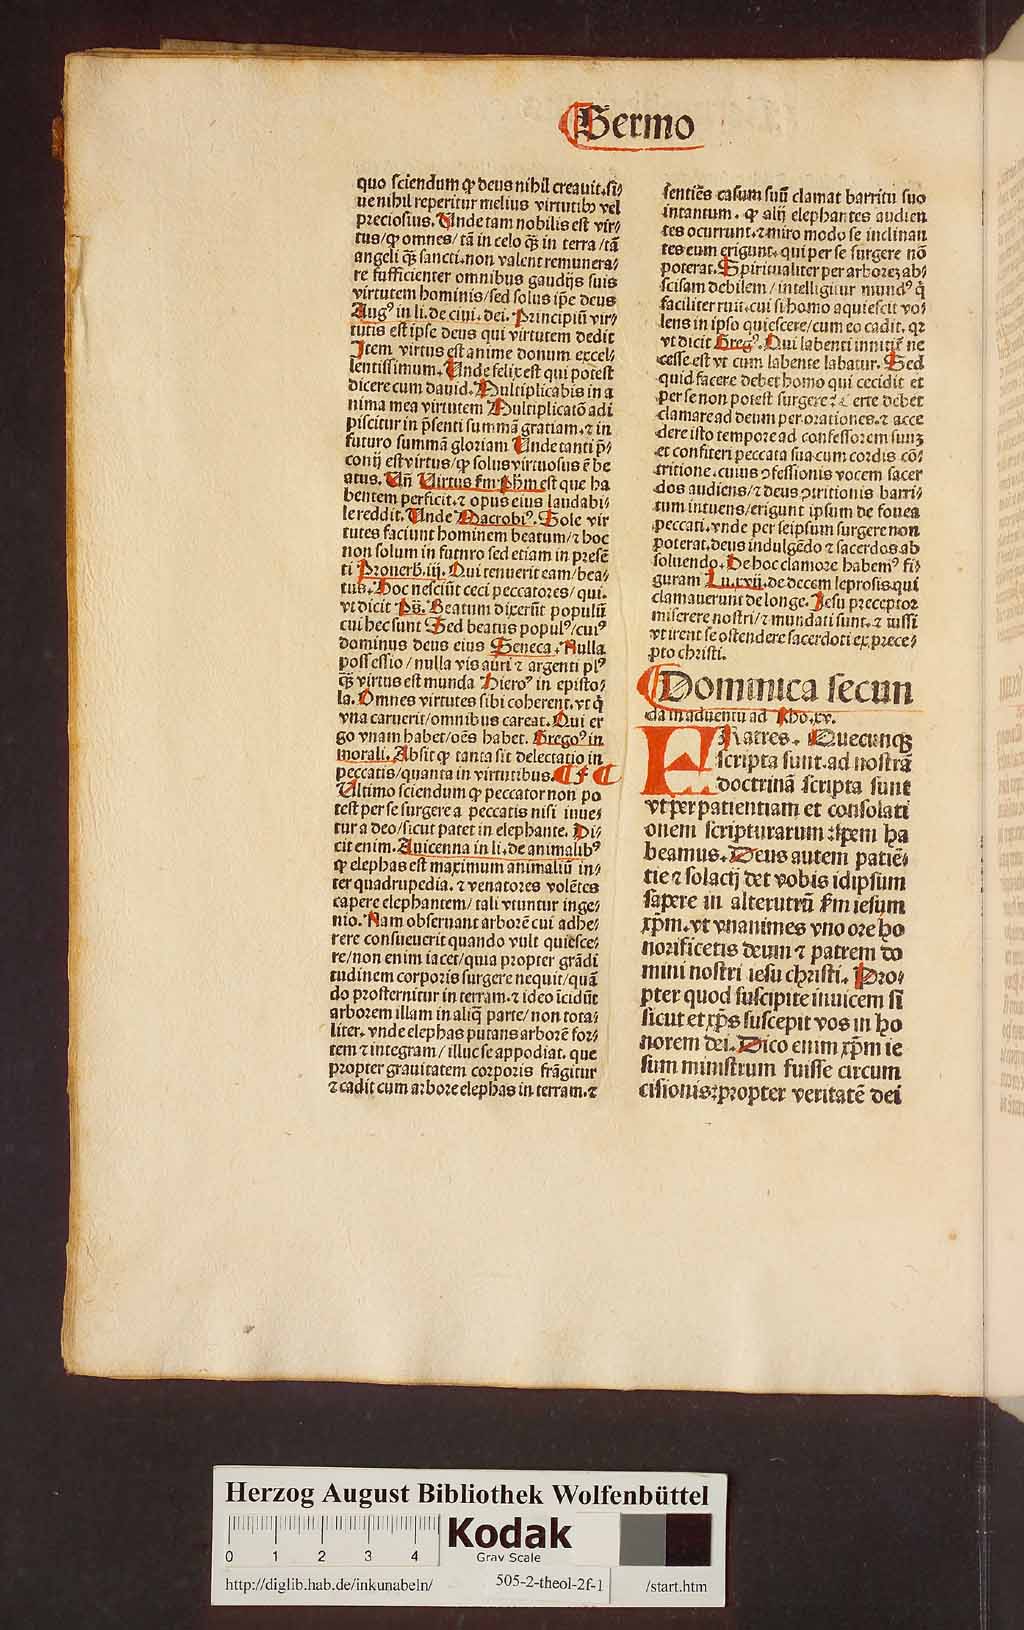 Sermo
quo sciendum ꝙ deus nihil creauit. si⸗
ue nihil reperitur melius virtutibꝰ vel
preciosius. Unde tam nobilis est vir⸗
tus/ꝙ omnes/tā in celo ꝙ̄s in terra/tā
angeli ꝙ̄s sancti.non valent remunera⸗
re sufficienter omnibus gaudijs suis
virtutem hominis/sed solus ip̄e deus
Augꝰ in li.de ciui.dei. Principiū vir⸗
tutis est ipse deus qui virtutem dedit
Item virtus est anime donum excel⸗
lentissimum. Unde felix est qui potest
dicere cum dauid. Multiplicabis in a
nima mea virtutem Multiplicatō adi
piscitur in p̄senti summā gratiam.⁊ in
futuro summā gloriam Unde tanti p̄⸗
conij est virtus/ꝙ solus virtuosus ē be
atus. Uñ Uirtus f̄m Ph̄m est que ha
bentem perficit.⁊ opus eius laudabi⸗
le reddit. Unde Macrobiꝰ. Sole vir
tutes faciunt hominem beatum/⁊ hoc
non solum in futnro sed etiam in presē
ti Prouerb.iij. Qui tenuerit eam/bea⸗
tus. Hoc nesciūt ceci peccatores/qui.
vt dicit Ps̄. Beatum dixerūt populū
cui hec sunt Sed beatus populꝰ/cuiꝰ
dominus deus eius Seneca. Nulla
possessio/nulla vis auri ⁊ argenti plꝰ
ꝙ̄s virtus est munda Hieroꝰ in episto⸗
la. Omnes virtutes sibi coherent.vt q̄
vna caruerit/omnibus careat. Qui er
go vnam habet/oēs habet. Gregoꝰ in
morali. Absit ꝙ tanta sit delectatio in
peccatis/quanta in virtutibus. ¶ f ¶
Ultimo sciendum ꝙ peccator non po
test per se surgere a peccatis nisi iuue⸗
tur a deo/sicut patet in elephante. Di⸗
cit enim. Auicenna in li.de animalibꝰ
ꝙ elephas est maximum animaliū in⸗
ter quadrupedia. ⁊ venatores volētes
capere elephantem/tali vtuntur inge⸗
nio. Nam obseruant arborē cui adhe⸗
rere consueuerit quando vult quiesce⸗
re/non enim iacet/quia propter grādi
tudinem corporis surgere nequit/quā
do prosternitur in terram.⁊ ideo īcidūt
arborem illam in aliq̄ parte/non tota⸗
liter. vnde elephas putans arborē for⸗
tem ⁊ integram/illuc se appodiat. que
propter grauitatem corporis frāgitur
⁊ cadit cum arbore elephas in terram.⁊
sentiēs casum suū clamat barritu suo
intantum. ꝙ alij elephantes audien
tes ocurrunt.⁊ miro modo se inclinan
tes eum erigunt. qui per se surgere nō
poterat. Spiritualiter per arborez ab⸗
scisam debilem/intelligitur mundꝰ q̄
faciliter ruit.cui si homo aquiescit vo⸗
lens in ipso quiescere/cum eo cadit. qꝛ
vt dicit Gregꝰ. Qui labenti innitit̄ ne
cesse est vt cum labente labatur. Sed
quid facere debet homo qui cecidit et
per se non potest surgere? Certe debet
clamare ad deum per orationes.⁊ acce
dere isto tempore ad confessorem suuꝫ
et confiteri peccata sua cum cordis cō⸗
tritione.cuius ꝯfessionis vocem sacer
dos audiens/⁊ deus ꝯtritionis barri⸗
tum intuens/erigunt ipsum de fouea
peccati.vnde per seipsum surgere non
poterat.deus indulgēdo ⁊ sacerdos ab
soluendo. De hoc clamore habemꝰ fi⸗
guram Lu.xvij.de decem leprosis.qui
clamauerunt de longe. Jesu preceptor
miserere nostri/⁊ mundati sunt.⁊ iussi
vt irent se ostendere sacerdoti ex prece⸗
pto christi.
Dominica secun
da in aduentu ad Rho.xv.
FRatres. Quecunqꝫ
scripta sunt.ad nostrā
doctrinā scripta sunt
vt per patientiam et consolati
onem scripturarum : spem ha
beamus. Deus autem patiē⸗
tie ⁊ solacij det vobis idipsum
sapere in alterutrū f̄m iesum
xp̄m.vt vnanimes vno ore ho
norificetis deum ⁊ patrem do
mini nostri iesu christi. Pro⸗
pter quod suscipite inuicem si
sicut et xp̄s suscepit vos in ho
norem dei. Dico enim xp̄m ie
sum ministrum fuisse circum
cisionis:propter veritatē dei
Herzog August Bibliothek Wolfenbüttel
0 1 2 3 4
Kodak
Gray Scale
http://diglib.hab.de/inkunabeln/ 505-2-theol-2f-1 /start.htm